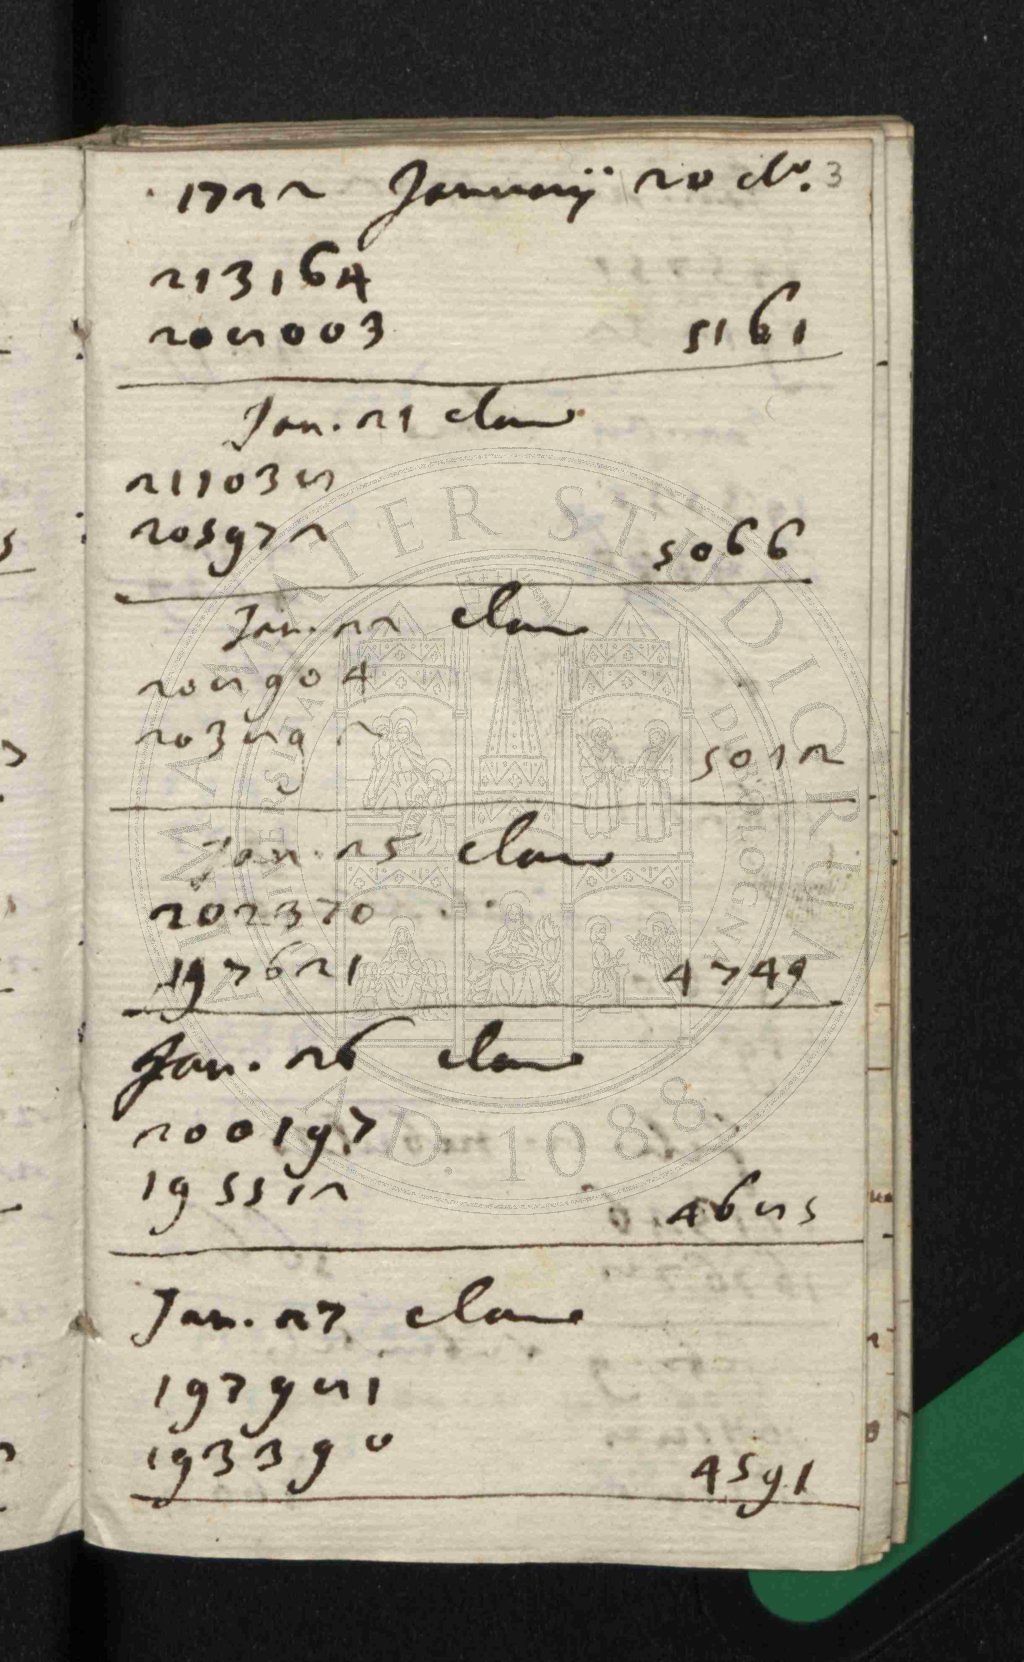 1722 Januarij 20 cla. 3
213164
208003 5161
Jan. 21 clara
211038
205972 5066
Jan. 22 clara
208904
203892 5012
Jan. 25 clara
202370
197621 4749
Jan. 26 clara
200197
195512 4685
Jan. 27 clara
197981
193390 4591
ALMA MATER STUDIORUM
A.D. 1088